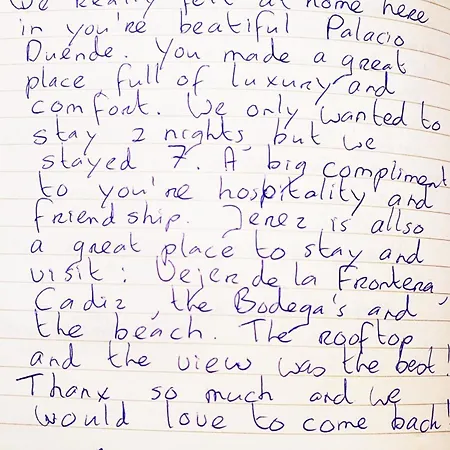 We really felt at home here
in you're beatiful Palacio
Duende. You made a great
place, full of luxury and
comfort. We only wanted to
stay 2 nights, but we
stayed 7. A big compliment
to you're hospitality and
friendship. Jerez is allso
a great place to stay and
visit: Vejer de la Frontera,
Cadiz, the Bodega's and
the beach. The rooftop
and the view was the best!
Thanx so much and we
would love to come back!